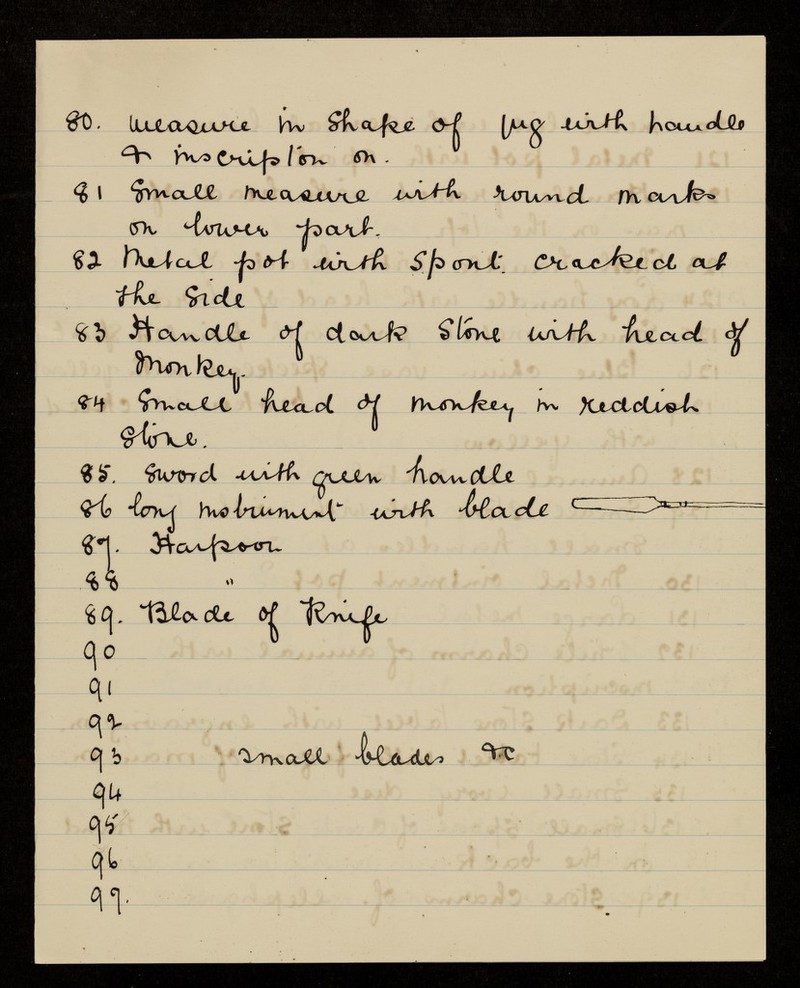 80. Measure in Shape of jug with handle
& inscription on.
81 Small measure with round marks
on lower part.
82 Metal pot with Spout. cracked at
the Side
83 Handle of dark Stone with head of
Monkey.
84 Small head of monkey in reddish
Stone.
85. Sword with green handle
86 long instrument with blade
87. Harpoon
88 "
89. Blade of Knife
90
91
92
93 Small blades &c
94
95
96
97.